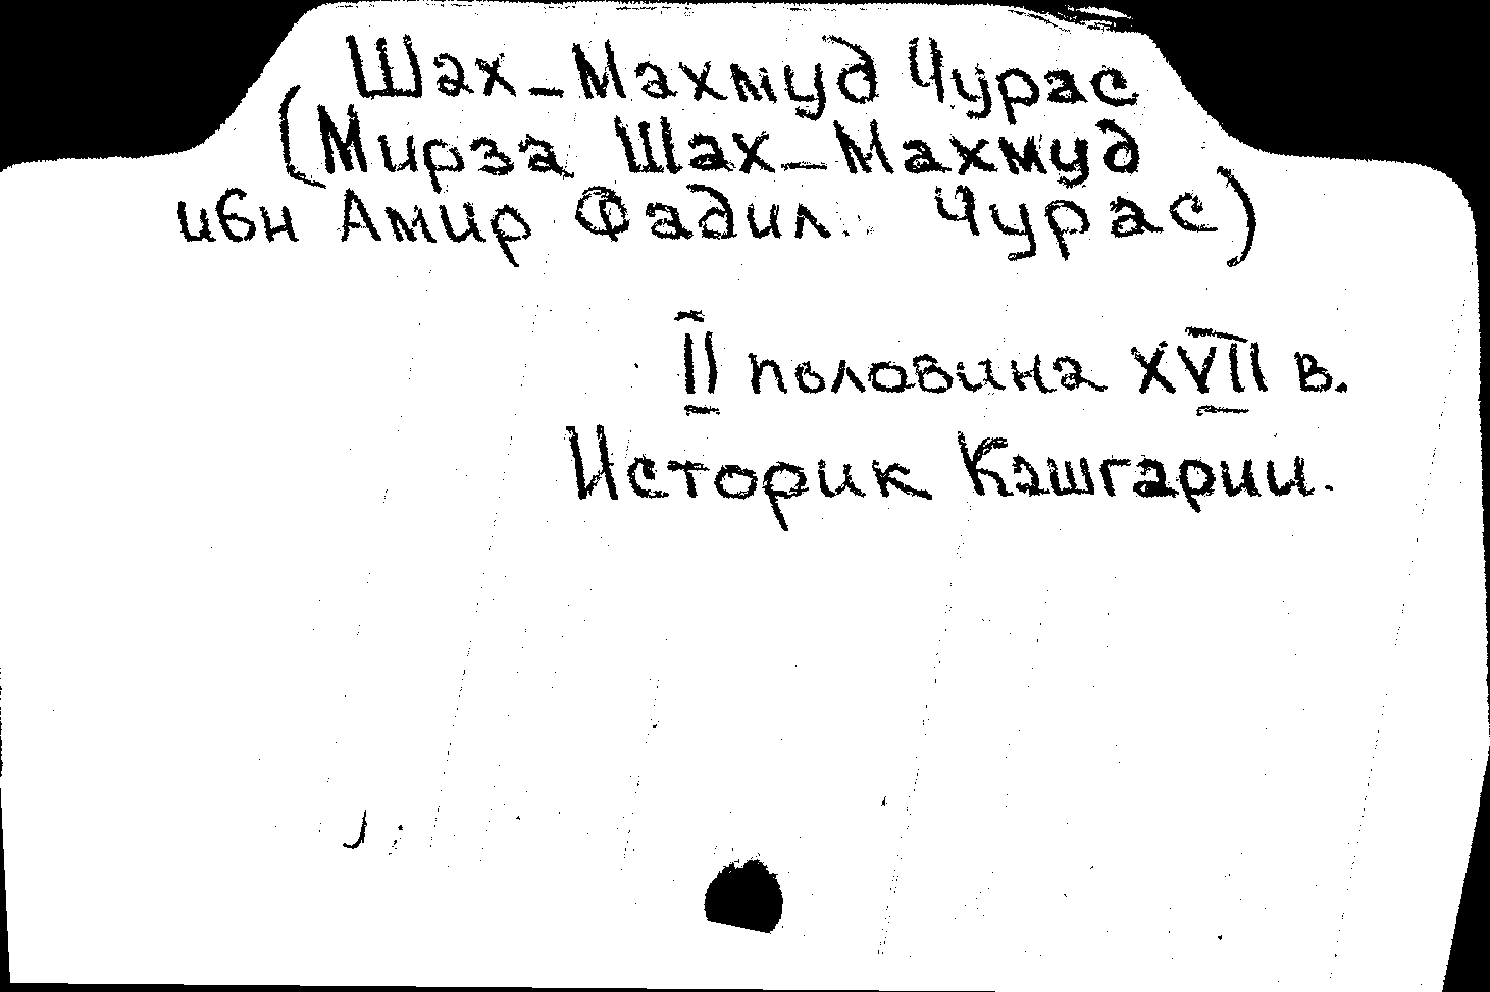 Шах-Махмуд Чурас
(Мирза Шах-Махмуд
ибн Амир Фадил Чурас)
II половина XVII в.
Историк Кашгарии.